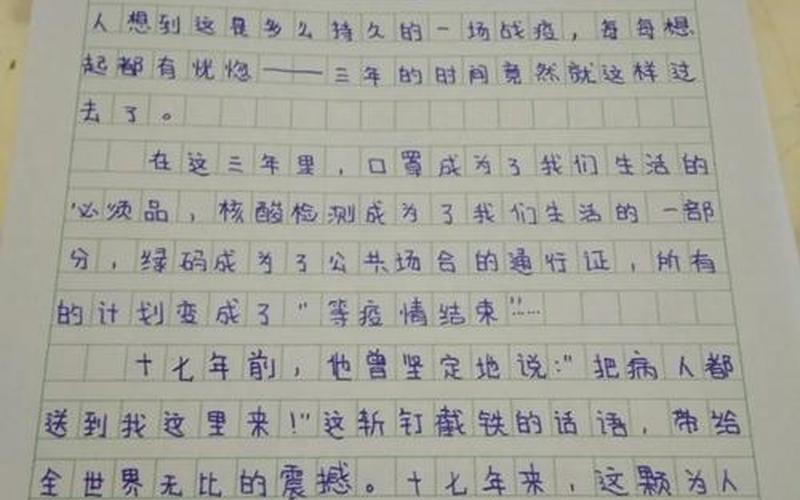 人想到这是多么持久的一场战疫，每每想
起都有恍惚——三年的时间竟然就这样过
去了。
在这三年里，口罩成为了我们生活的
必须品，核酸检测成为了我们生活的一部
分，绿码成为了公共场合的通行证，所有
的计划变成了“等疫情结束”……
十七年前，他曾坚定地说：“把病人都
送到我这里来！”这斩钉截铁的话语，带给
全世界无比的震撼。十七年来，这颗为人